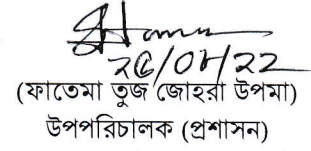 ২৫/০৮/২২
(ফাতেমা তুজ জোহরা উপমা)
উপপরিচালক (প্রশাসন)